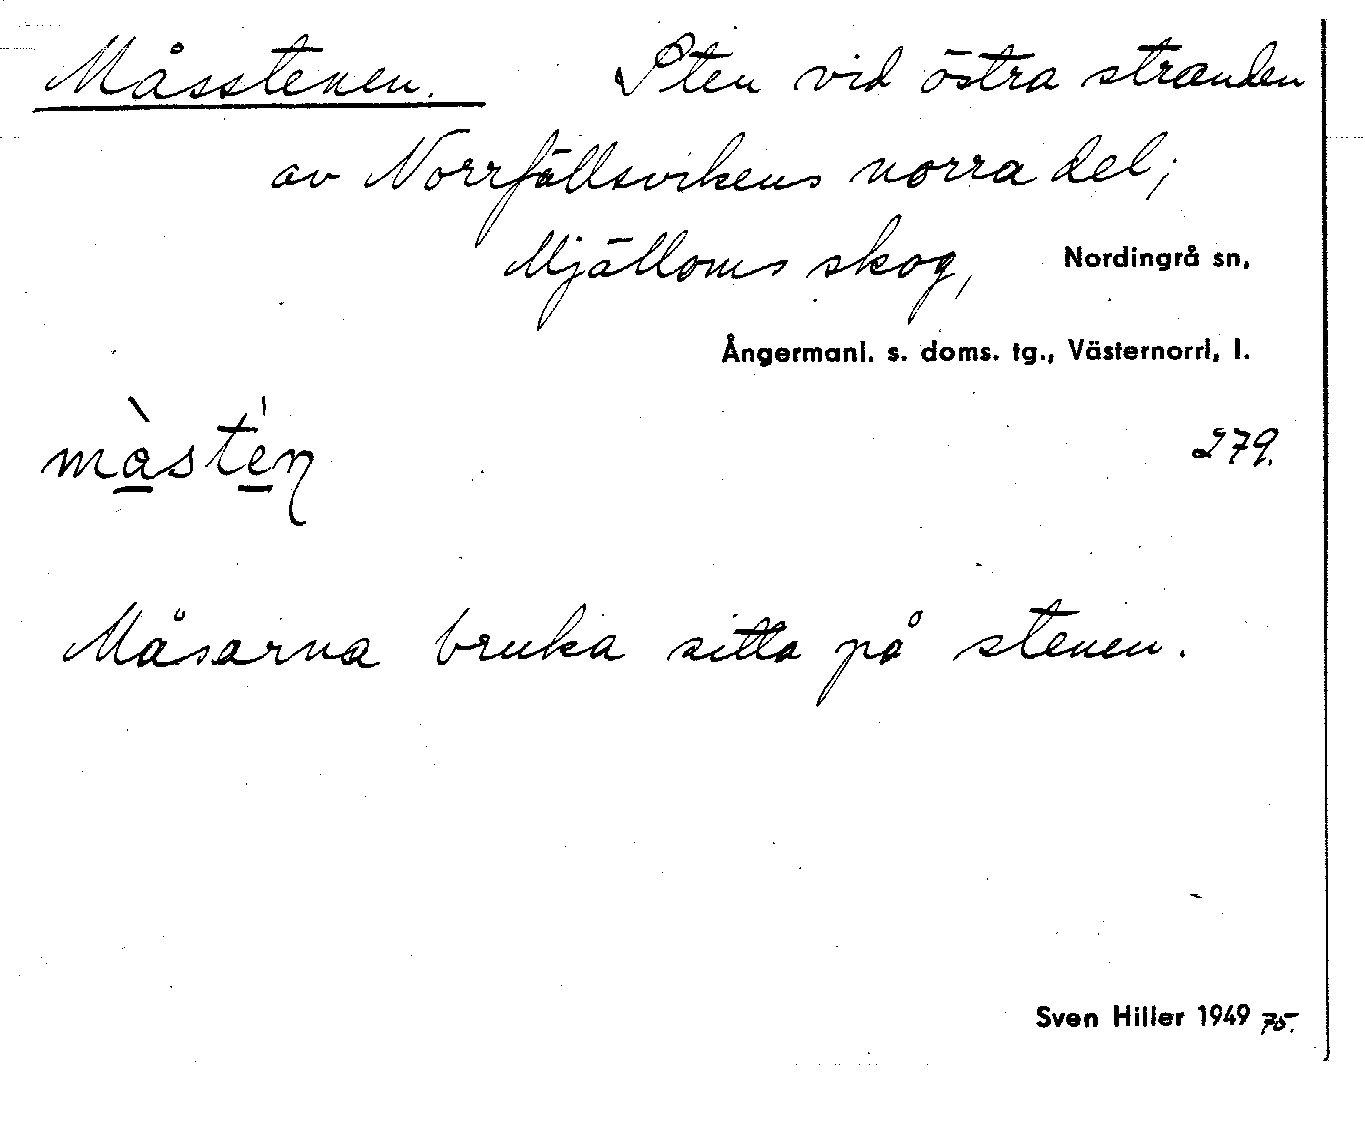 Måsstenen. Sten vid östra stranden
av Norrfällsvikens norra del;
Mjälloms skog, Nordingrå sn,
Ångermanl. s. doms. tg., Västernorrl. l.
279.
Måsarna bruka sitta på stenen.
Sven Hiller 1949 75.